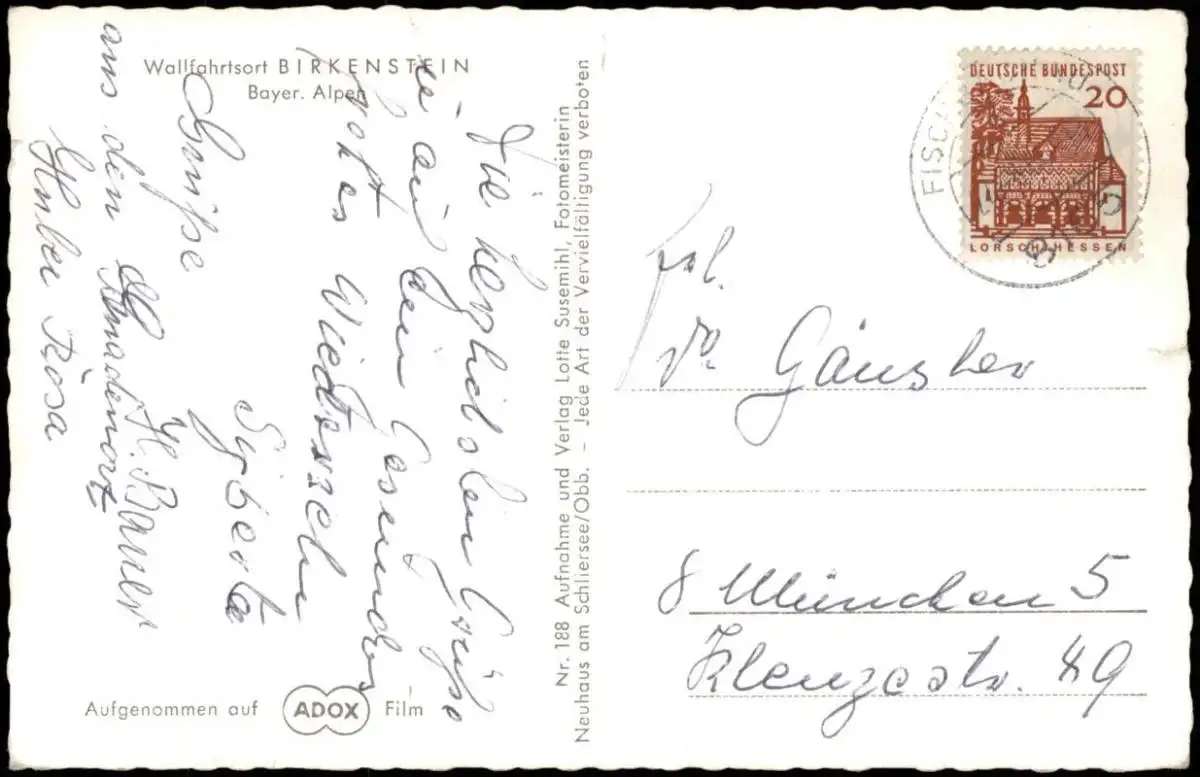 Wallfahrtsort BIRKENSTEIN
Bayer. Alpen
Die herzlichsten Grüße
u. auf ein Gesundes
frohes Wiedersehn
Sigberta
H. Bauer
Grüße
aus den
Huber Rosa
Aufgenommen auf ADOX Film
Nr. 188 Aufnahme und Verlag Lotte Susemihl, Fotomeisterin
Neuhaus am Schliersee/Obb. – Jede Art der Vervielfältigung verboten
DEUTSCHE BUNDESPOST
20
LORSCH/HESSEN
FISCH
8165
Frl.
Gänsler
8 München 5
Klenzestr. 49